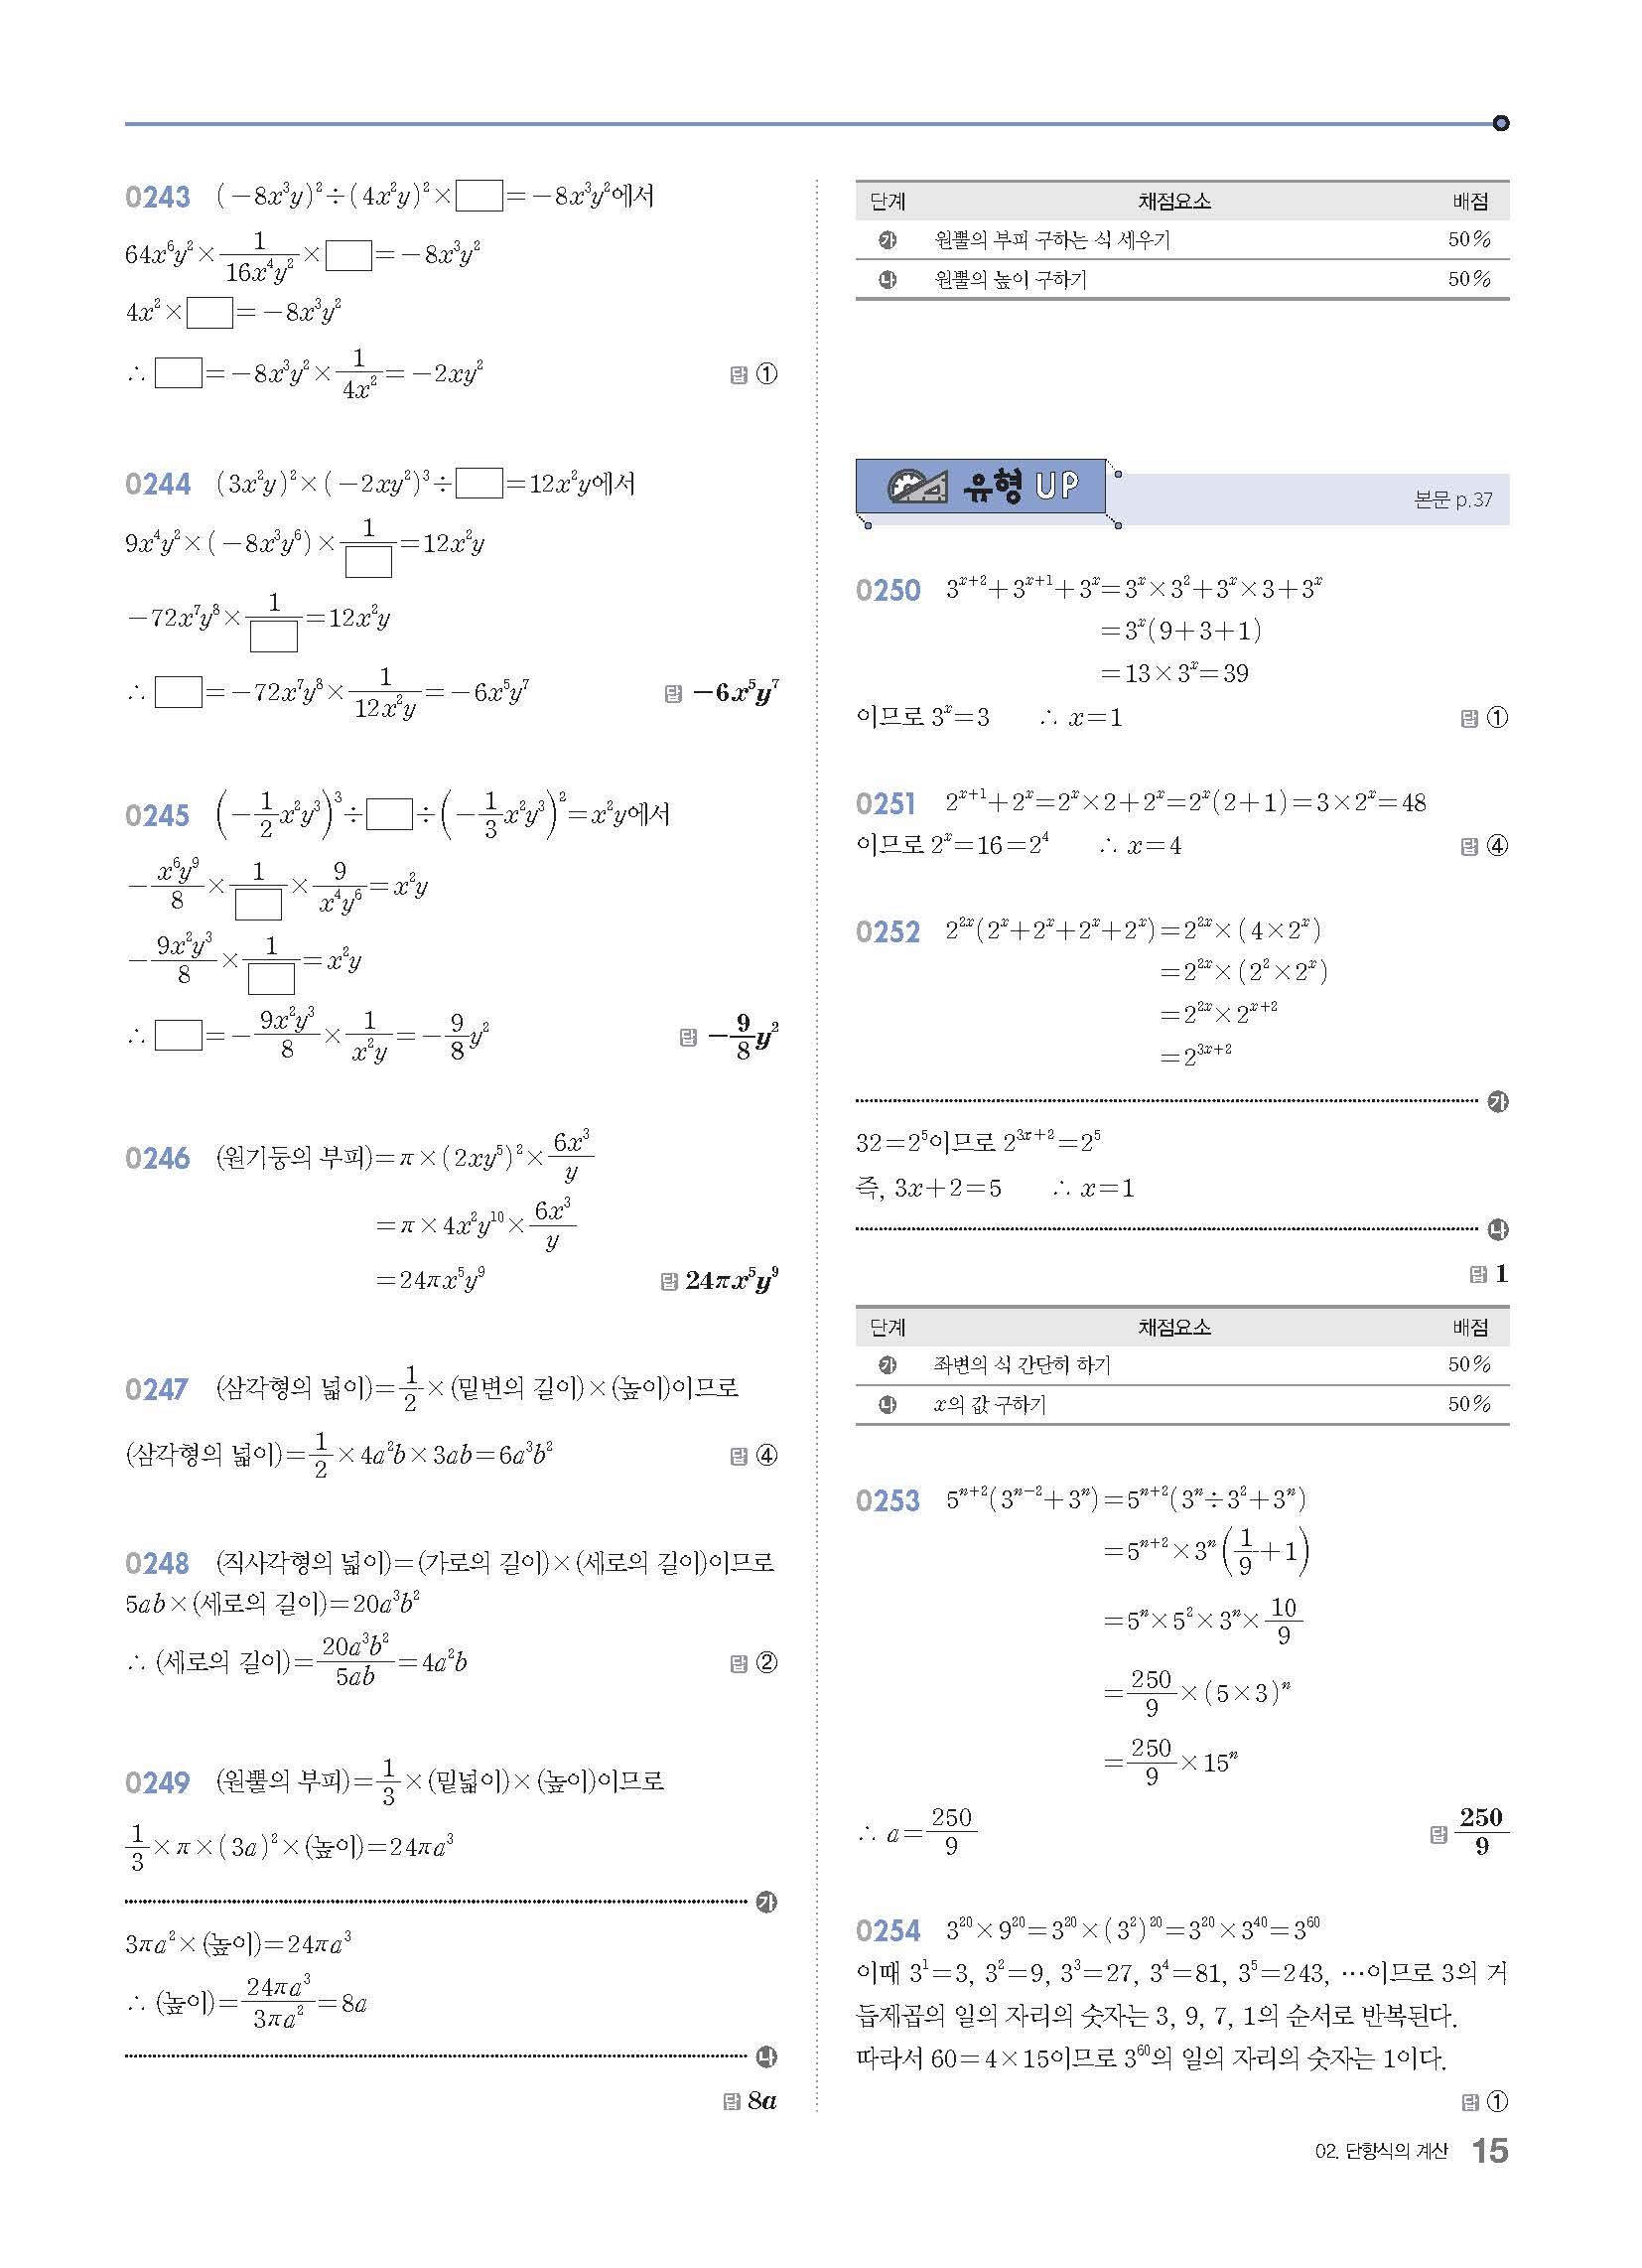 0243 (-8x³y)²÷(4x²y)²×□=-8x³y²에서
64x⁶y²×1/(16x⁴y²)×□=-8x³y²
4x²×□=-8x³y²
∴ □=-8x³y²×1/(4x²)=-2xy² 답 ①
0244 (3x²y)²×(-2xy²)³÷□=12x²y에서
9x⁴y²×(-8x³y⁶)×1/□=12x²y
-72x⁷y⁸×1/□=12x²y
∴ □=-72x⁷y⁸×1/(12x²y)=-6x⁵y⁷ 답 -6x⁵y⁷
0245 (-1/2 x²y³)³÷□÷(-1/3 x²y³)²=x²y에서
-x⁶y⁹/8×1/□×9/(x⁴y⁶)=x²y
-9x²y³/8×1/□=x²y
∴ □=-9x²y³/8×1/(x²y)=-9/8 y² 답 -9/8 y²
0246 (원기둥의 부피)=π×(2xy⁵)²×6x³/y
=π×4x²y¹⁰×6x³/y
=24πx⁵y⁹ 답 24πx⁵y⁹
0247 (삼각형의 넓이)=1/2×(밑변의 길이)×(높이)이므로
(삼각형의 넓이)=1/2×4a²b×3ab=6a³b² 답 ④
0248 (직사각형의 넓이)=(가로의 길이)×(세로의 길이)이므로
5ab×(세로의 길이)=20a³b²
∴ (세로의 길이)=20a³b²/5ab=4a²b 답 ②
0249 (원뿔의 부피)=1/3×(밑넓이)×(높이)이므로
1/3×π×(3a)²×(높이)=24πa³
가
3πa²×(높이)=24πa³
∴ (높이)=24πa³/3πa²=8a
나
답 8a
단계 채점요소 배점
가 원뿔의 부피 구하는 식 세우기 50%
나 원뿔의 높이 구하기 50%
유형 UP 본문 p.37
0250 3ˣ⁺²+3ˣ⁺¹+3ˣ=3ˣ×3²+3ˣ×3+3ˣ
=3ˣ(9+3+1)
=13×3ˣ=39
이므로 3ˣ=3 ∴ x=1 답 ①
0251 2ˣ⁺¹+2ˣ=2ˣ×2+2ˣ=2ˣ(2+1)=3×2ˣ=48
이므로 2ˣ=16=2⁴ ∴ x=4 답 ④
0252 2²ˣ(2ˣ+2ˣ+2ˣ+2ˣ)=2²ˣ×(4×2ˣ)
=2²ˣ×(2²×2ˣ)
=2²ˣ×2ˣ⁺²
=2³ˣ⁺²
가
32=2⁵이므로 2³ˣ⁺²=2⁵
즉, 3x+2=5 ∴ x=1
나
답 1
단계 채점요소 배점
가 좌변의 식 간단히 하기 50%
나 x의 값 구하기 50%
0253 5ⁿ⁺²(3ⁿ⁻²+3ⁿ)=5ⁿ⁺²(3ⁿ÷3²+3ⁿ)
=5ⁿ⁺²×3ⁿ(1/9+1)
=5ⁿ×5²×3ⁿ×10/9
=250/9×(5×3)ⁿ
=250/9×15ⁿ
∴ a=250/9 답 250/9
0254 3²⁰×9²⁰=3²⁰×(3²)²⁰=3²⁰×3⁴⁰=3⁶⁰
이때 3¹=3, 3²=9, 3³=27, 3⁴=81, 3⁵=243, …이므로 3의 거
듭제곱의 일의 자리의 숫자는 3, 9, 7, 1의 순서로 반복된다.
따라서 60=4×15이므로 3⁶⁰의 일의 자리의 숫자는 1이다.
답 ①
02. 단항식의 계산 15